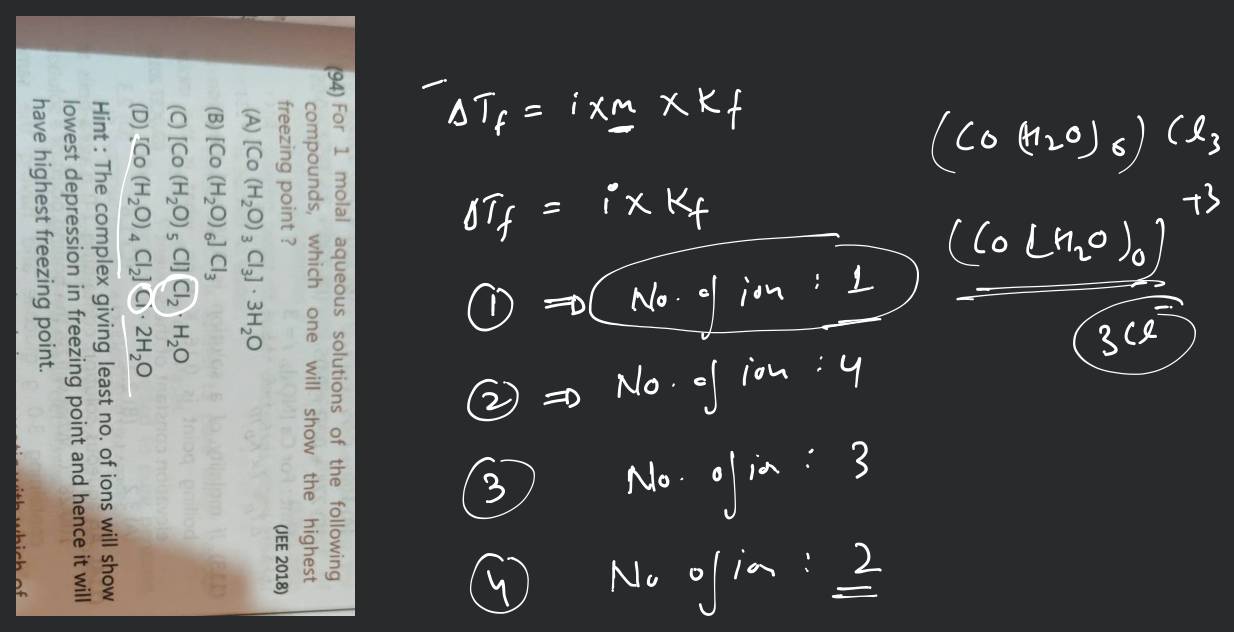 (94) For 1 molal aqueous solutions of the following
compounds, which one will show the highest
freezing point ? (JEE 2018)
(A) [Co (H₂O)₃ Cl₃] · 3H₂O
(B) [Co (H₂O)₆] Cl₃
(C) [Co (H₂O)₅ Cl] Cl₂ · H₂O
(D) [Co (H₂O)₄ Cl₂] Cl · 2H₂O
Hint : The complex giving least no. of ions will show
lowest depression in freezing point and hence it will
have highest freezing point.
ΔTf = i x m x Kf
ΔTf = i x Kf
① ⇒ No. of ion : 1
② ⇒ No. of ion : 4
③ No. of ion : 3
④ No of ion : 2
(Co (H₂O)₆) Cl₃
(Co (H₂O)₆)⁺³
3Cl⁻